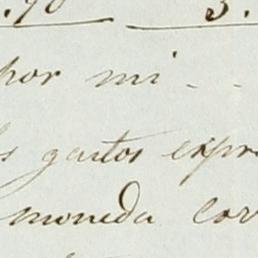 .90 3.
por mi - -
s gastos expr
moneda cor